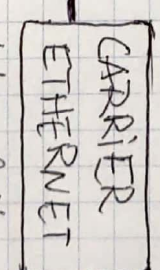 CARRiER
ETHERNET